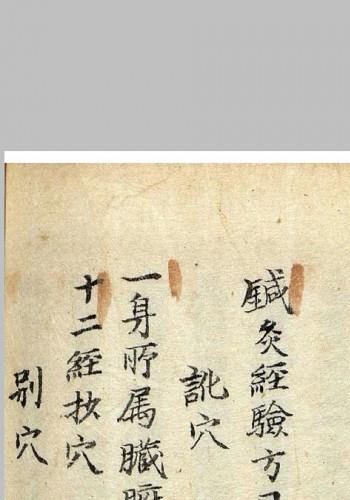 鍼灸經驗方
訛穴
一身所属臟腑
十二經抄穴
別穴